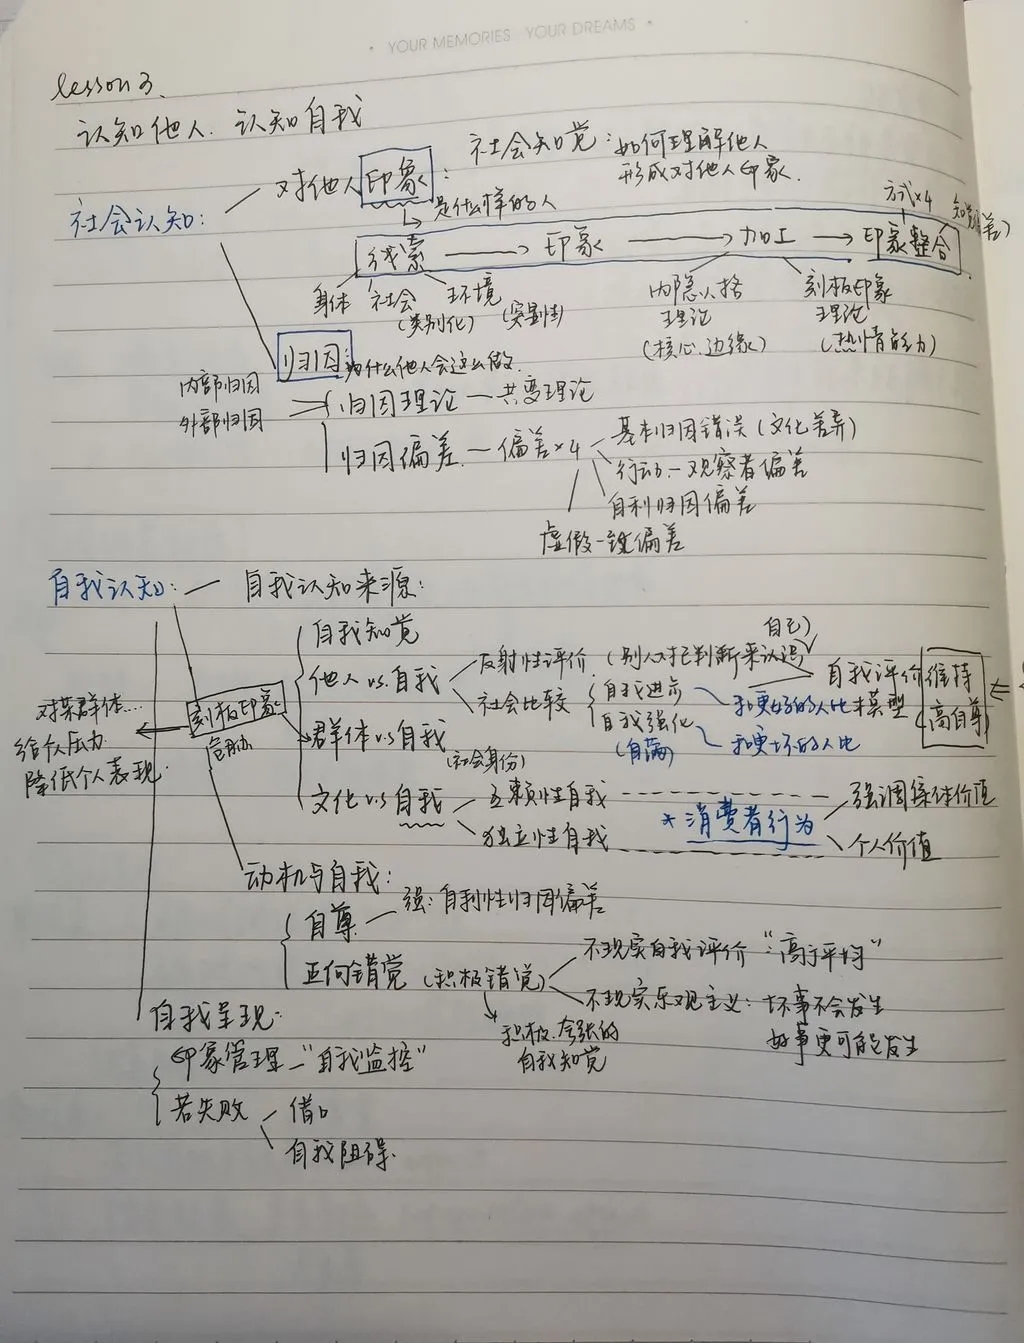 YOUR MEMORIES YOUR DREAMS
lesson 3.
认知他人. 认知自我
社会认知:
对他人印象:
社会知觉: 如何理解他人
形成对他人印象.
是什么样的人
方式×4
线索 → 印象 → 加工 → 印象整合
身体 社会 环境
(类别化)
内隐人格
理论
(核心.边缘)
刻板印象
理论
(热情能力)
归因: 为什么他人会这么做.
内部归因
外部归因
归因理论 — 共变理论
归因偏差. — 偏差×4
基本归因错误 (文化差异)
行动-观察者偏差
自利归因偏差
虚假一致偏差
自我认知: — 自我认知来源:
自我知觉
他人 vs. 自我
反射性评价 (别人对己判断来认识
自己)
社会比较
自我进步
自我强化
(自满)
和更好的人比
和更坏的人比
自我评价
模型
维持
高自尊
刻板印象
威胁
对某群体....
给个人压力.
降低个人表现.
群体 vs 自我
(社会身份)
文化 vs 自我
互赖性自我
独立性自我
* 消费者行为
强调集体价值
个人价值
动机与自我:
自尊 — 强: 自利性归因偏差
正向错觉 (积极错觉)
不现实自我评价 "高于平均"
不现实乐观主义: 坏事不会发生
好事更可能发生
积极.夸张的
自我知觉
自我呈现:
印象管理 — "自我监控"
若失败
借口
自我阻碍.